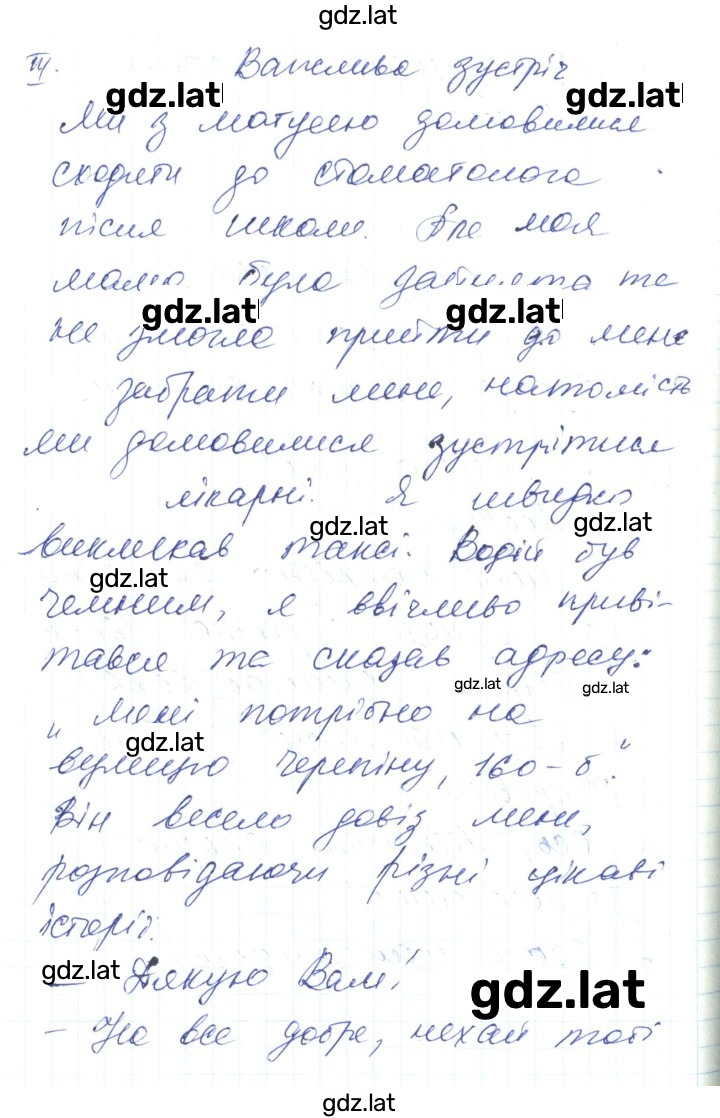 gdz.lat
IV. Важлива зустріч
gdz.lat gdz.lat
Ми з матусею домовилися
сходити до стоматолога
після школи. Але моя
мама була зайнята та
gdz.lat gdz.lat
не змогла прийти до мене
забрати мене, натомість
ми домовилися зустрітися
лікарні. Я швидко
gdz.lat gdz.lat
викликав таксі. Водій був
gdz.lat
чемним, я ввічливо приві-
тався та сказав адресу:
gdz.lat gdz.lat
„Мені потрібно на
gdz.lat
вулицю Черепіну, 160-б."
Він весело довіз мене,
розповідаючи різні цікаві
історії.
gdz.lat
— Дякую Вам!
gdz.lat
– На все добре, нехай тобі
gdz.lat